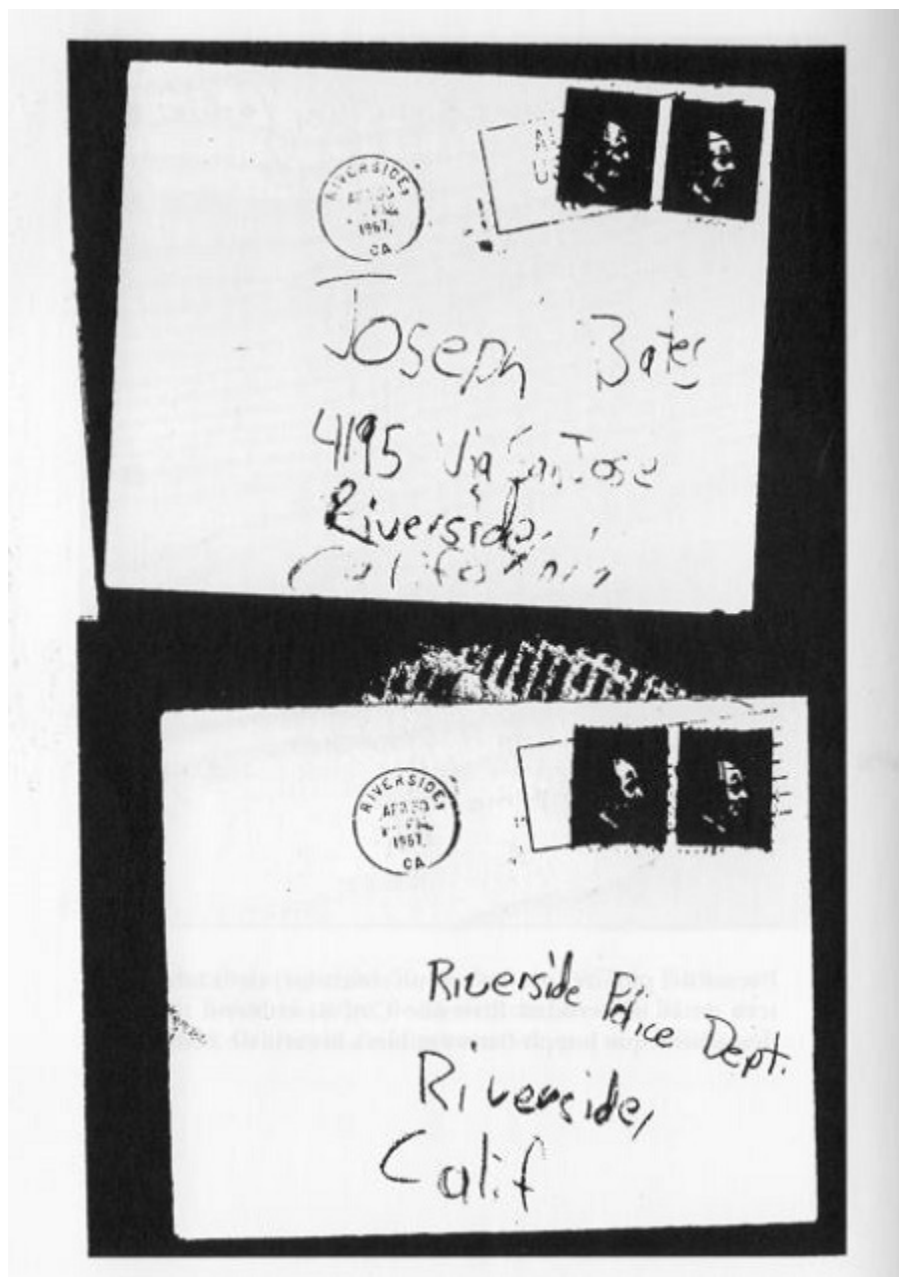 RIVERSIDE,
1967
CA
Joseph Bates
4195 Via San Jose
Riverside,
California
RIVERSIDE,
APR 30
1967
CA
Riverside Police Dept.
Riverside,
Calif